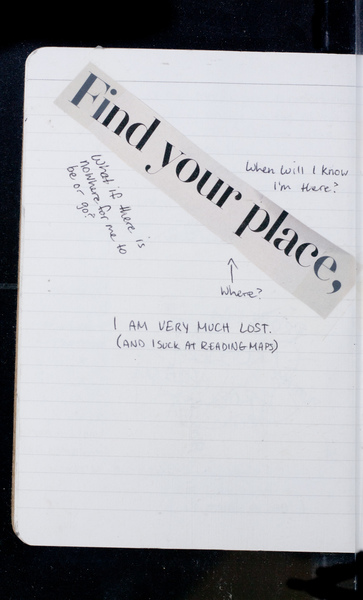 Find your place,
When will I know
I'm there?
What if there is
nowhere for me to
be or go?
Where?
I AM VERY MUCH LOST.
(AND I SUCK AT READING MAPS)